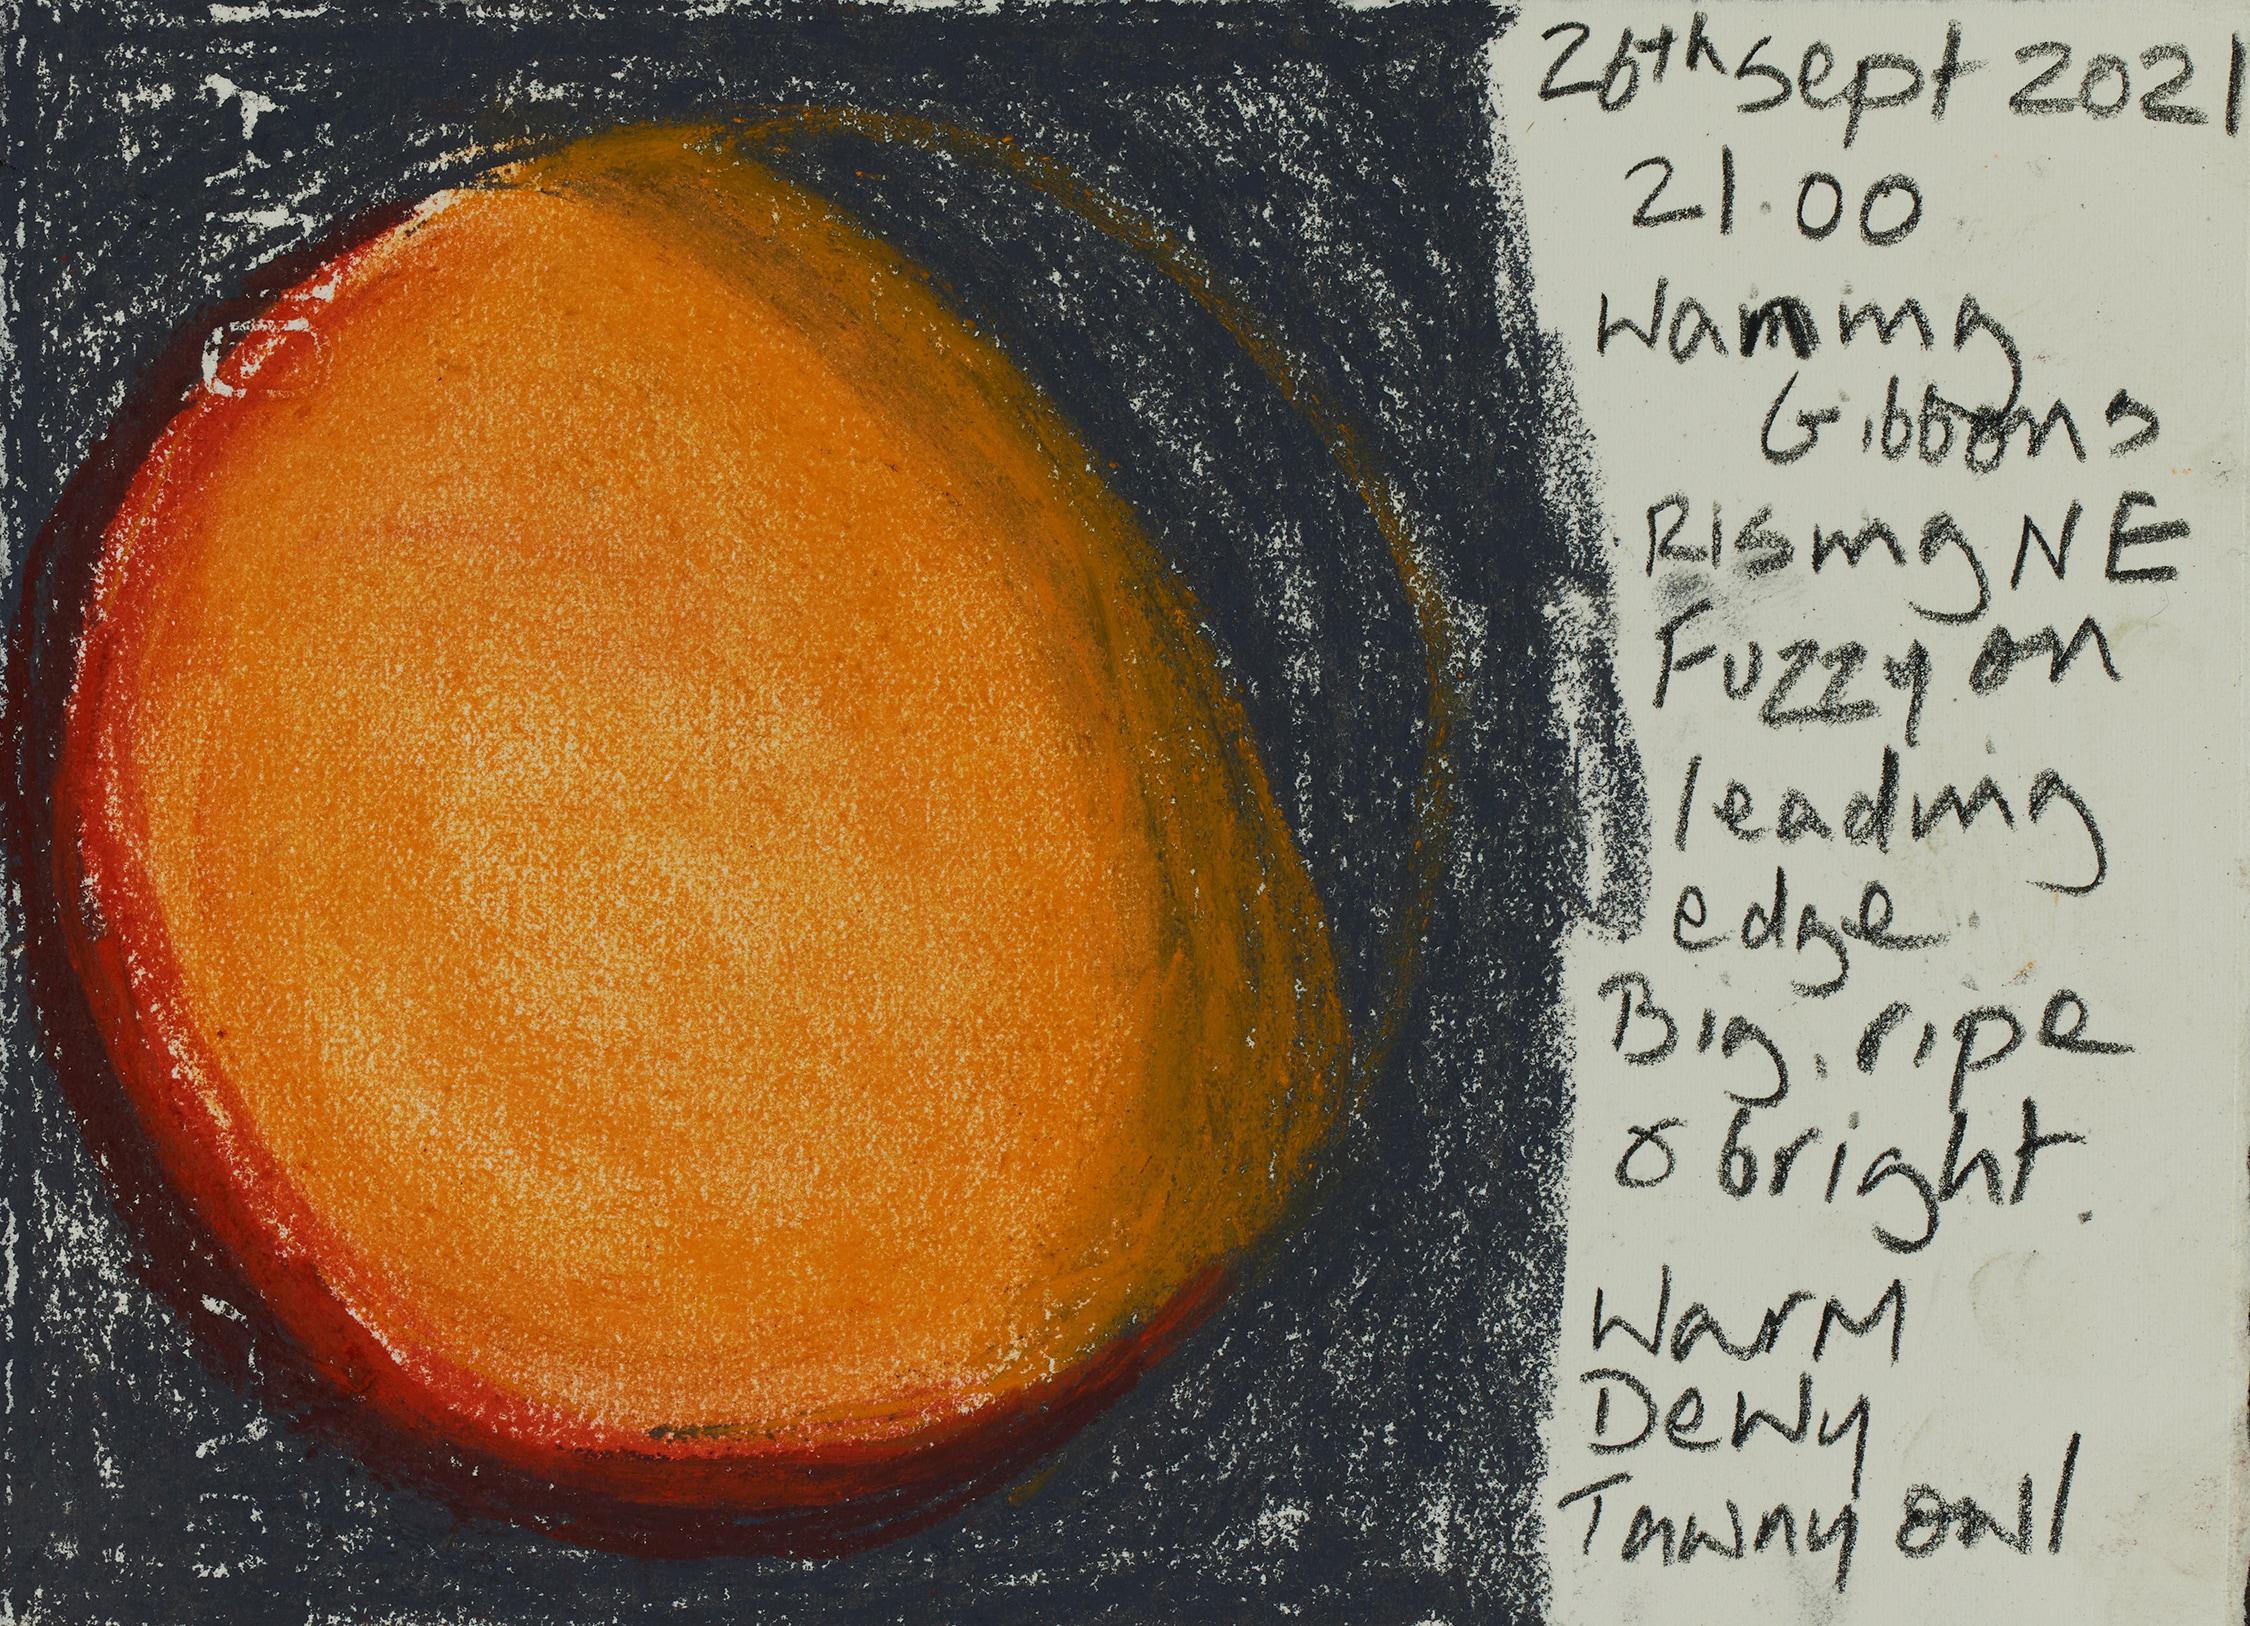 26th Sept 2021
21.00
Waning
Gibbons
Rising NE
Fuzzy on
leading
edge
Big, ripe
& bright.
Warm
Dewy
Tawny owl